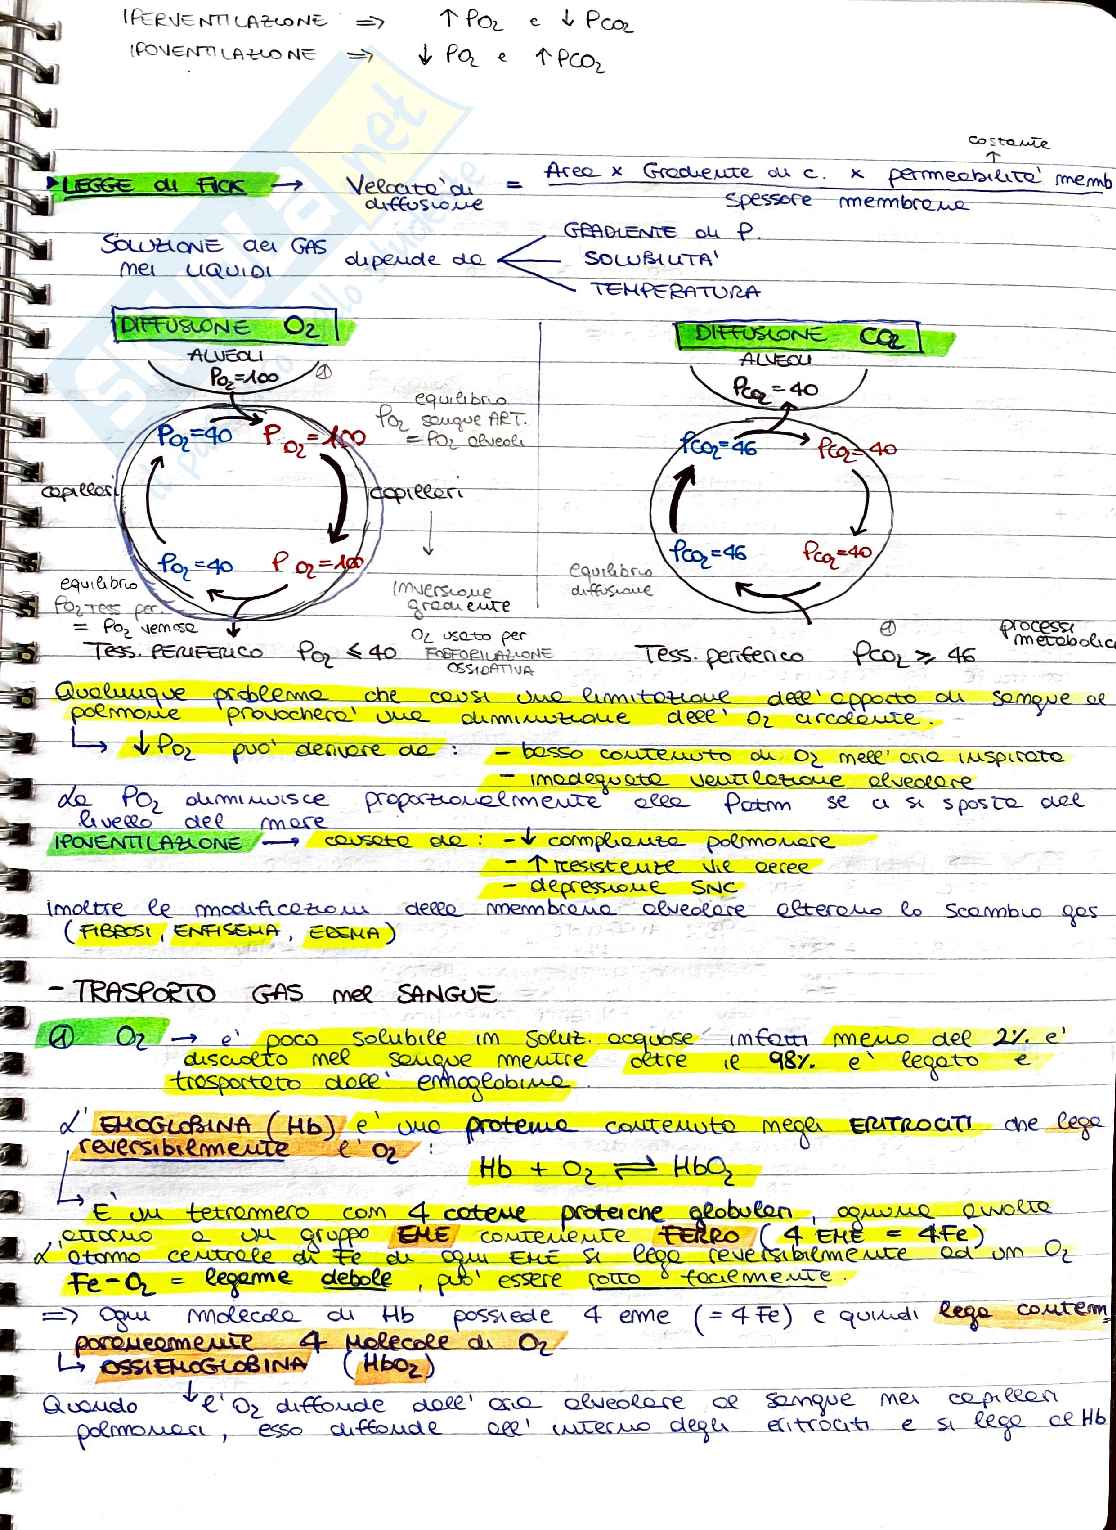 IPERVENTILAZIONE ⇒ ↑ PO2 e ↓ PCO2
IPOVENTILAZIONE ⇒ ↓ PO2 e ↑ PCO2
costante
↑
LEGGE di FICK → Velocità di diffusione = Area x Gradiente di c. x permeabilità memb
spessore membrana
SOLUZIONE dei GAS nei LIQUIDI dipende da
GRADIENTE di P.
SOLUBILITA'
TEMPERATURA
DIFFUSIONE O2
ALVEOLI
PO2=100 ①
PO2=40 PO2=100
equilibrio
PO2 sangue ART.
= PO2 alveoli
capillari capillari
PO2=40 PO2=100
equilibrio
PO2 Tess per.
= PO2 venosa
inversione
gradiente
O2 usato per
FOSFORILAZIONE
OSSIDATIVA
Tess. PERIFERICO PO2 ≤ 40
DIFFUSIONE CO2
ALVEOLI
PCO2=40
PCO2=46 PCO2=40
PCO2=46 PCO2=40
equilibrio
diffusione
①
processi
metabolici
Tess. periferico PCO2 ≥ 46
Qualunque problema che causi una limitazione dell'apporto di sangue al
polmone provocherà una diminuzione dell'O2 circolante.
↳ ↓PO2 può derivare da: - basso contenuto di O2 nell'aria inspirata
- inadeguata ventilazione alveolare
La PO2 diminuisce proporzionalmente alla Patm se ci si sposta dal
livello del mare
IPOVENTILAZIONE → causata da: - ↓ complianza polmonare
- ↑ resistenze vie aeree
- depressione SNC
inoltre le modificazioni della membrana alveolare alterano lo scambio gas
(FIBROSI, ENFISEMA, EDEMA)
- TRASPORTO GAS nel SANGUE
① O2 → è poco solubile in soluz. acquose infatti meno del 2% è
disciolto nel sangue mentre oltre il 98% è legato e
trasportato dall'emoglobina.
L'EMOGLOBINA (Hb) è una proteina contenuta negli ERITROCITI che lega
reversibilmente l'O2:
Hb + O2 ⇌ HbO2
↳ È un tetramero con 4 catene proteiche globulari, ognuna avvolta
attorno a un gruppo EME contenente FERRO (4 EME = 4Fe)
L'atomo centrale di Fe di ogni EME si lega reversibilmente ad un O2
Fe-O2 = legame debole, può essere rotto facilmente.
⇒ Ogni molecola di Hb possiede 4 eme (=4Fe) e quindi lega contem
poraneamente 4 molecole di O2
↳ OSSIEMOGLOBINA (HbO2)
Quando ↓ l'O2 diffonde dall'aria alveolare al sangue nei capillari
polmonari, esso diffonde all'interno degli eritrociti e si lega al Hb